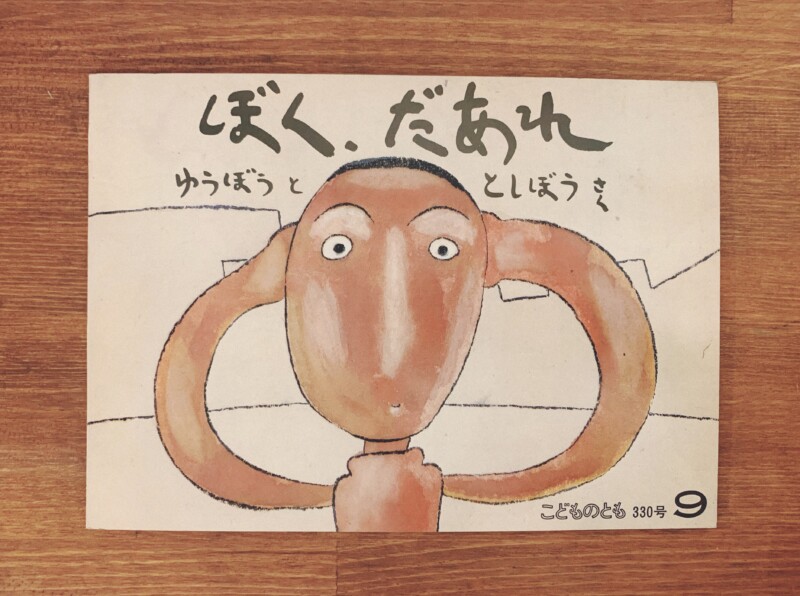 ぼく、だあれ
ゆうぼう と としぼう さく
こどものとも 330号 9